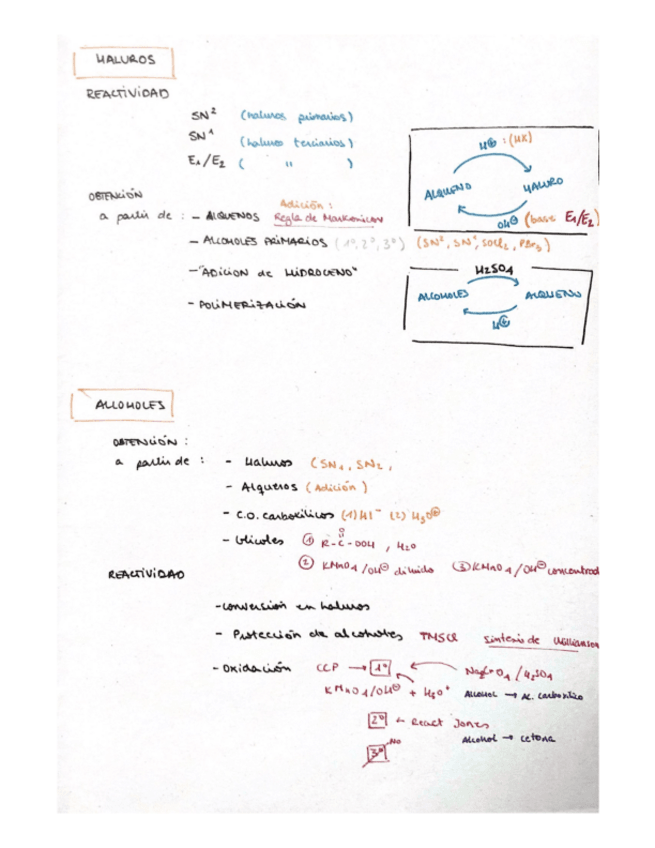 HALUROS
REACTIVIDAD
SN² (haluros primarios)
SN¹ (haluros terciarios)
E₁/E₂ ( " )
H⊕ : (HX)
ALQUENO HALURO
OH⊖ (base E₁/E₂)
OBTENCIÓN
a partir de : - ALQUENOS Adición : Regla de Markonicov
- ALCOHOLES PRIMARIOS (1º, 2º, 3º) (SN², SN¹, SOCl₂, PBr₃)
- "ADICION de HIDROGENO"
- POLIMERIZACIÓN
H₂SO₄
ALCOHOLES ALQUENO
H⊕
ALCOHOLES
OBTENCIÓN :
a partir de : - Haluros (SN₁, SN₂,
- Alquenos (Adición)
- C.O. carboxílicos (1) (2) H₃O⊕
- Glicoles ① R-C-OOH , H₂O
O
② KMnO₄/OH⊖ diluido ③ KMnO₄/OH⊖ concentrad
REACTIVIDAD
- conversión en haluros
- Protección de alcoholes TMSCl Sintesis de Williamson
- Oxidación CCP → 1º ← /H₂SO₄
KMnO₄/OH⊖ + H₃O⁺ Alcohol → Ac. Carboxílico
2º ← React Jones
Alcohol → cetona
3º NO